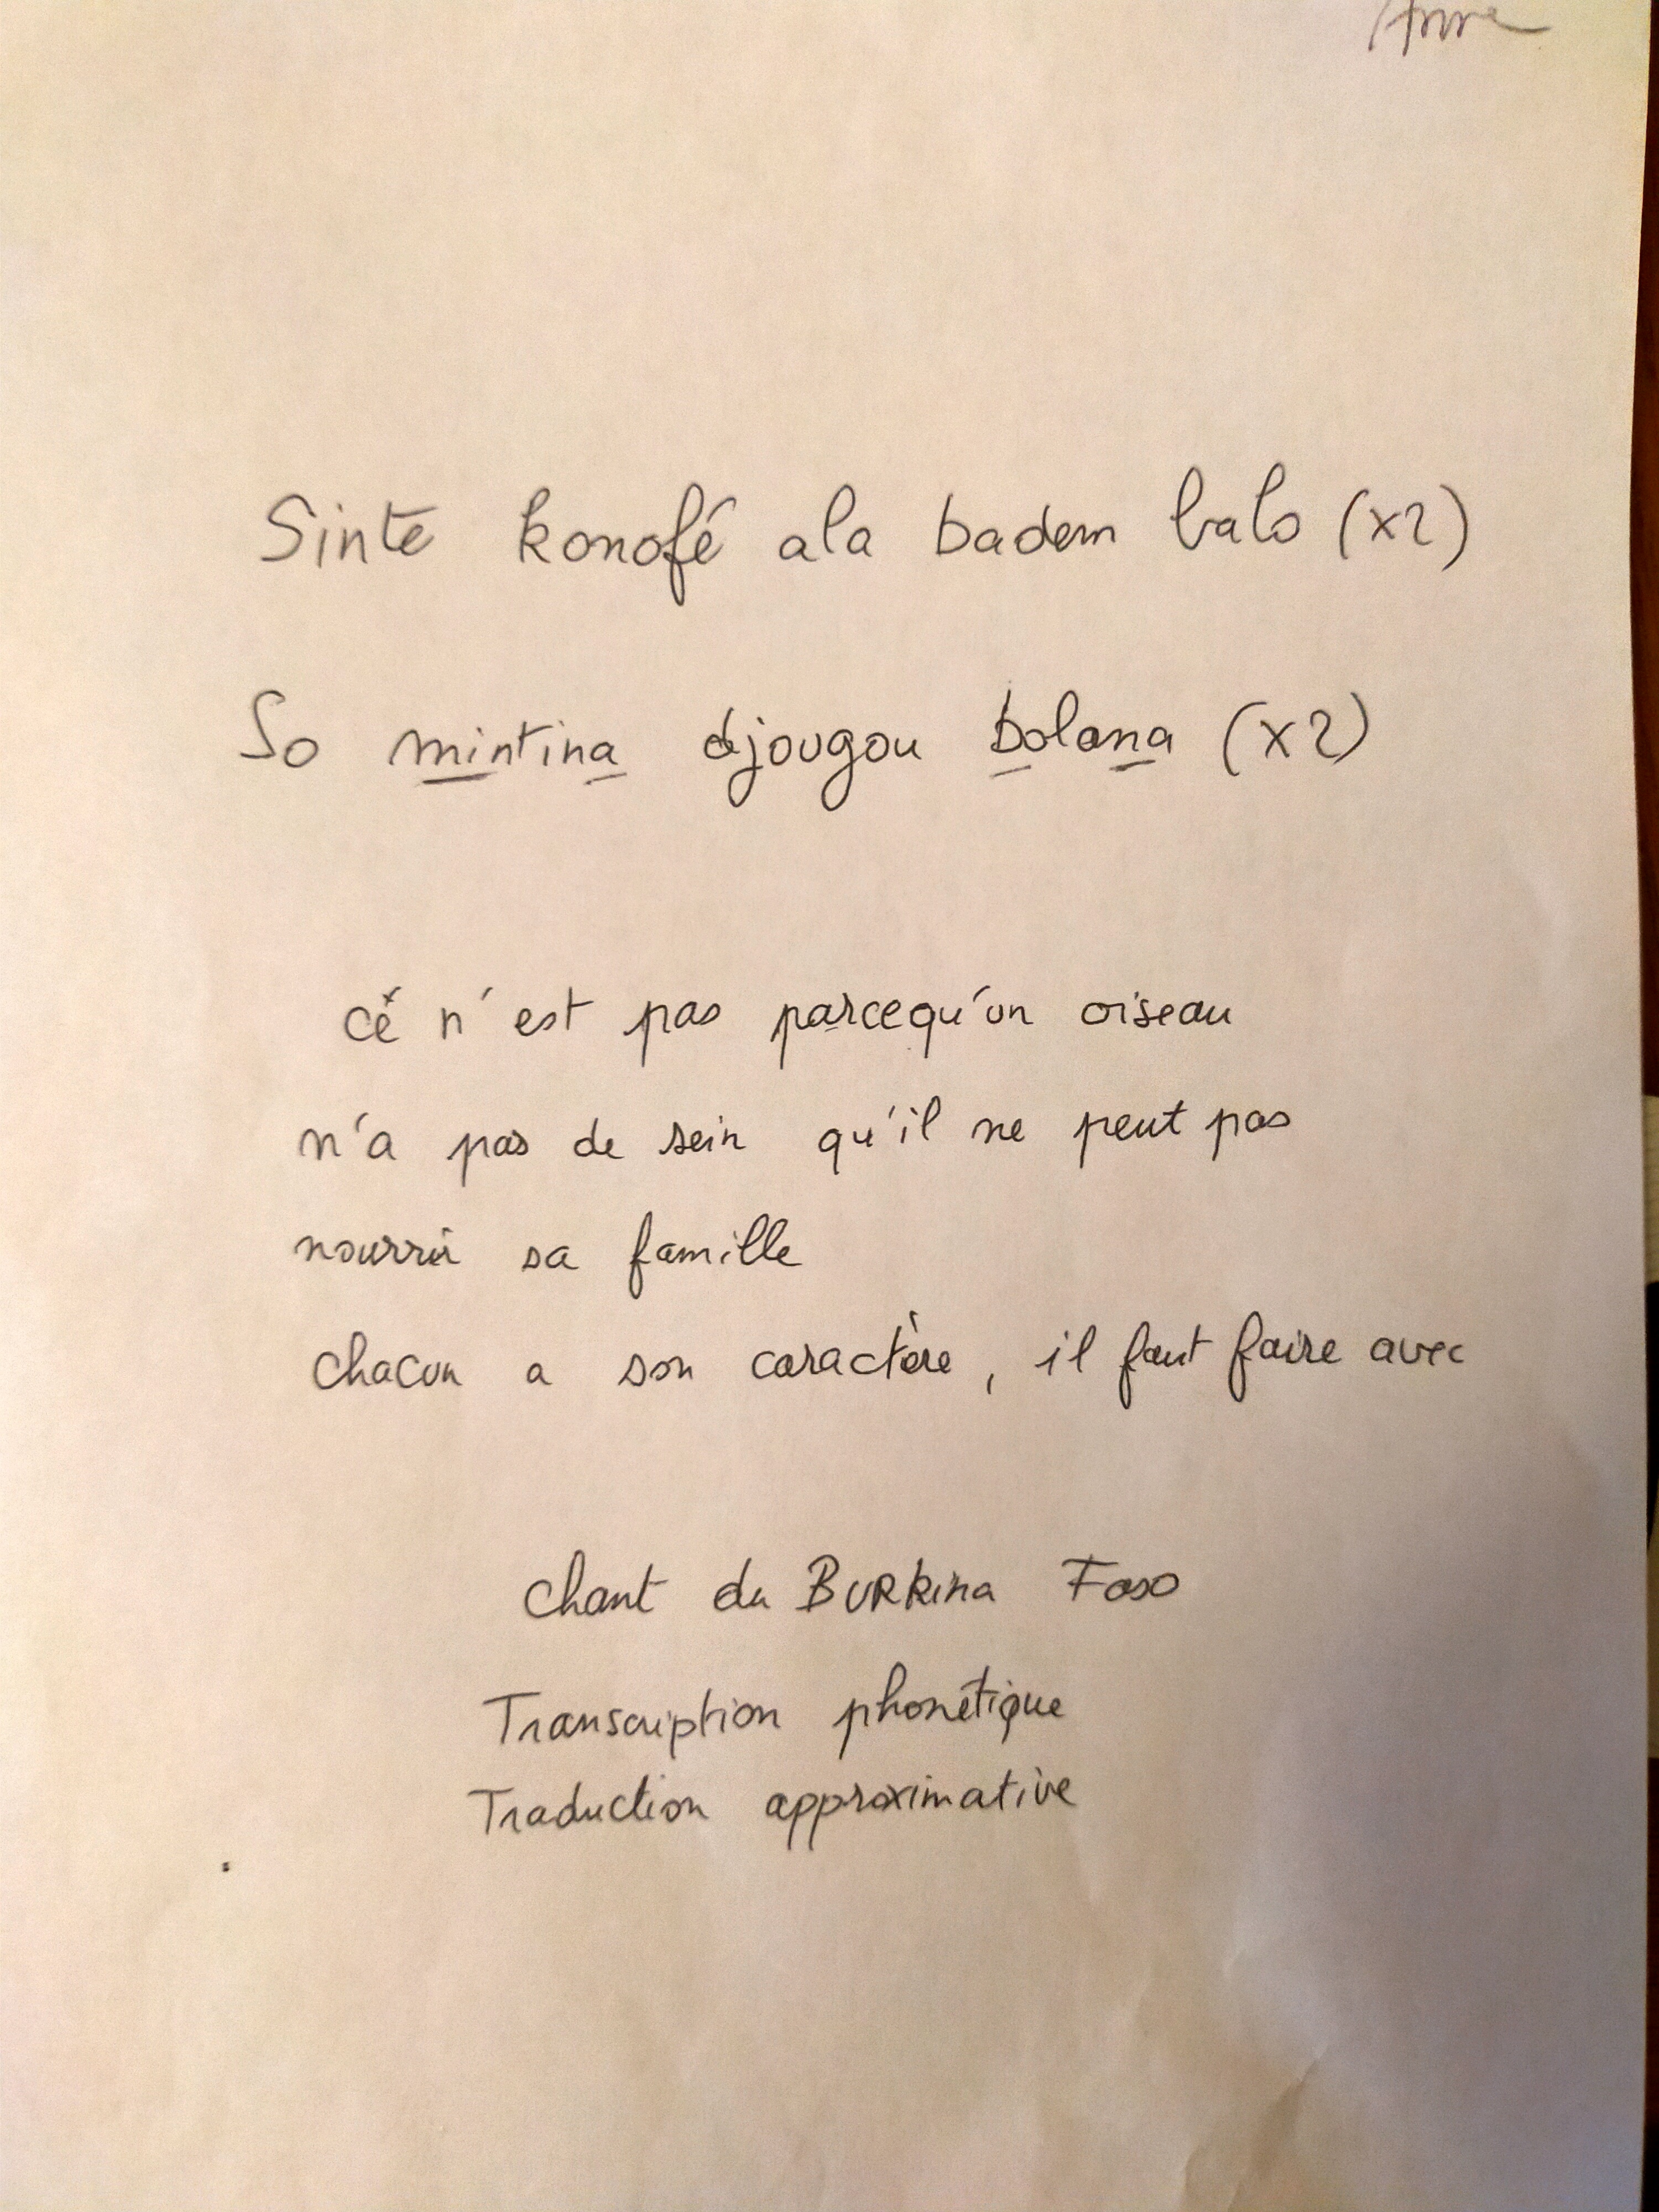 Anne
Sinte konofé ala badem balo (x2)
So mintina djougou bolona (x2)
Ce n'est pas parcequ'un oiseau
n'a pas de sein qu'il ne peut pas
nourrir sa famille
chacun a son caractère, il faut faire avec
chant du BURKina Faso
Transcription phonétique
Traduction approximative